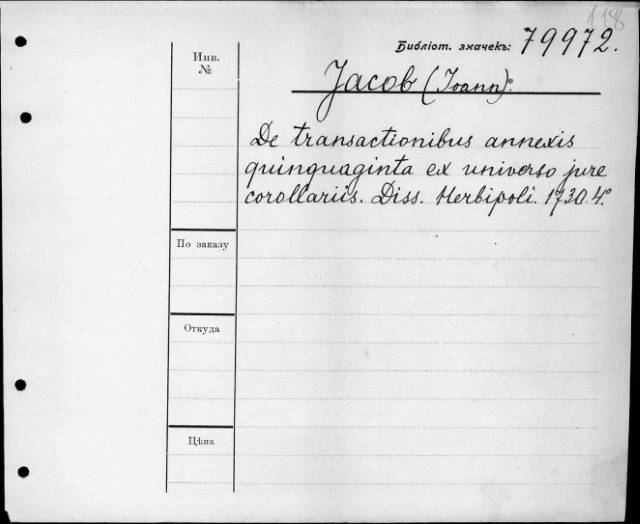 118
Библіот. значекъ: 79972.
Инв.
№
Jacob (Joann).
De transactionibus annexis
quinquaginta ex universo jure
corollariis. Diss. Herbipoli. 1730. 4.º
По заказу
Откуда
Цѣна